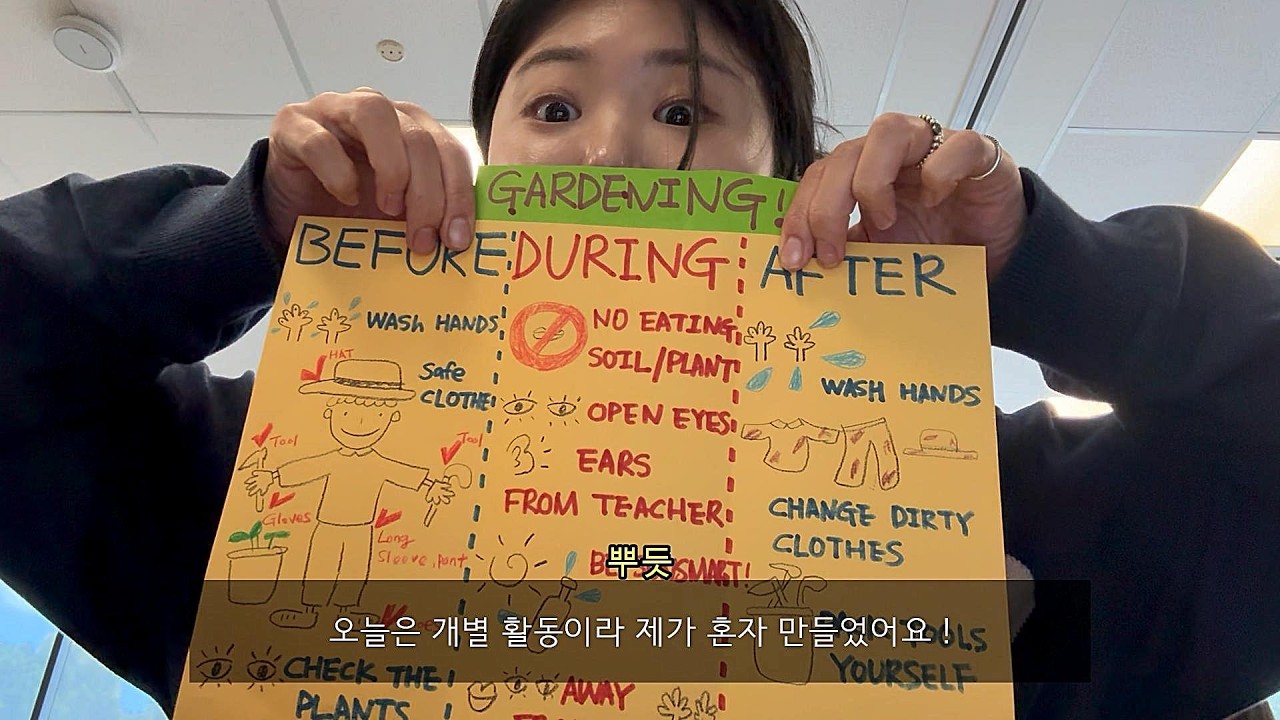 GARDENING!
BEFORE
WASH HANDS
HAT
Safe
CLOTHE
Tool
Tool
Gloves
Long
Sleeve, pant
CHECK THE
PLANTS
DURING
NO EATING
SOIL/PLANT
OPEN EYES
EARS
FROM TEACHER
SMART!
AWAY
AFTER
WASH HANDS
CHANGE DIRTY
CLOTHES
TOOLS
YOURSELF
뿌듯
오늘은 개별 활동이라 제가 혼자 만들었어요!